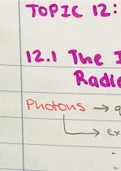 TOPIC 12:
12.1 The
Radi
Photons → q
ex